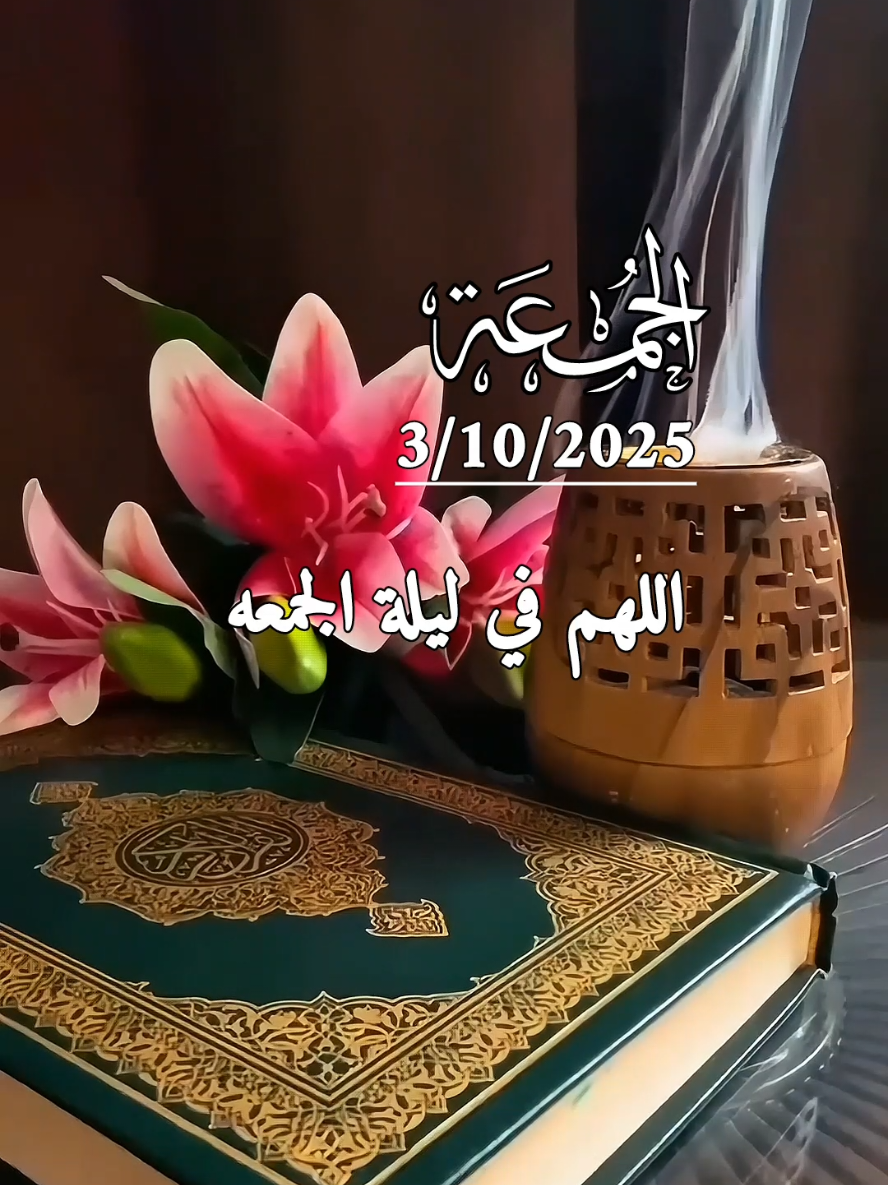 الجُمعَة
3/10/2025
اللهم في ليلة الجمعه